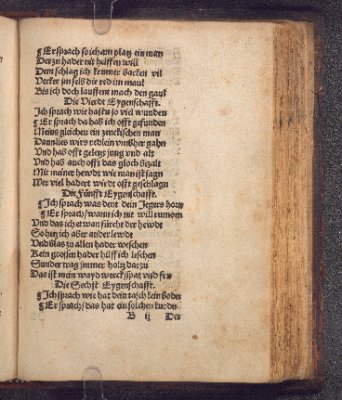 ¶Er sprach so ich am platz ein man
Der zu hader nit helffen will
Dem schlag ich krumer backen vil
Verker jm sels die red im maul
Bis ich doch lauffent mach den gaul
Die Vierdt Eygenschafft.
Ich sprach wie hastu so viel wunden
¶Er sprach da hab ich offt gefunden
Meins gleichen ein zenckischen man
Dannles wirs redlein umbher gahn
Und hab offt gelegt jung und alt
Und hab auch offt das gloch bezalt
Mit mainer hewdt wie man ist sagn
Wer viel hadert wirdt offt geschlagn
Die Fünfft Eygenschafft.
¶Ich sprach was deut dein Jegers horn
¶Er sprach/wann ich nit will
Und das ich etwan fürcht der hewdt
So hetz ich aber ander lewdt
Und blas zu allen hader weschen
Kein grossen hader hilff ich leschen
Sunder trag jmmer holtz darzu
Das ist mein waydwerck spat und fru
Die Sechst Eygenschafft.
¶Ich sprach wie hat dein tasch kein boden
¶Er sprach/das hat ein solchen
B ij Der